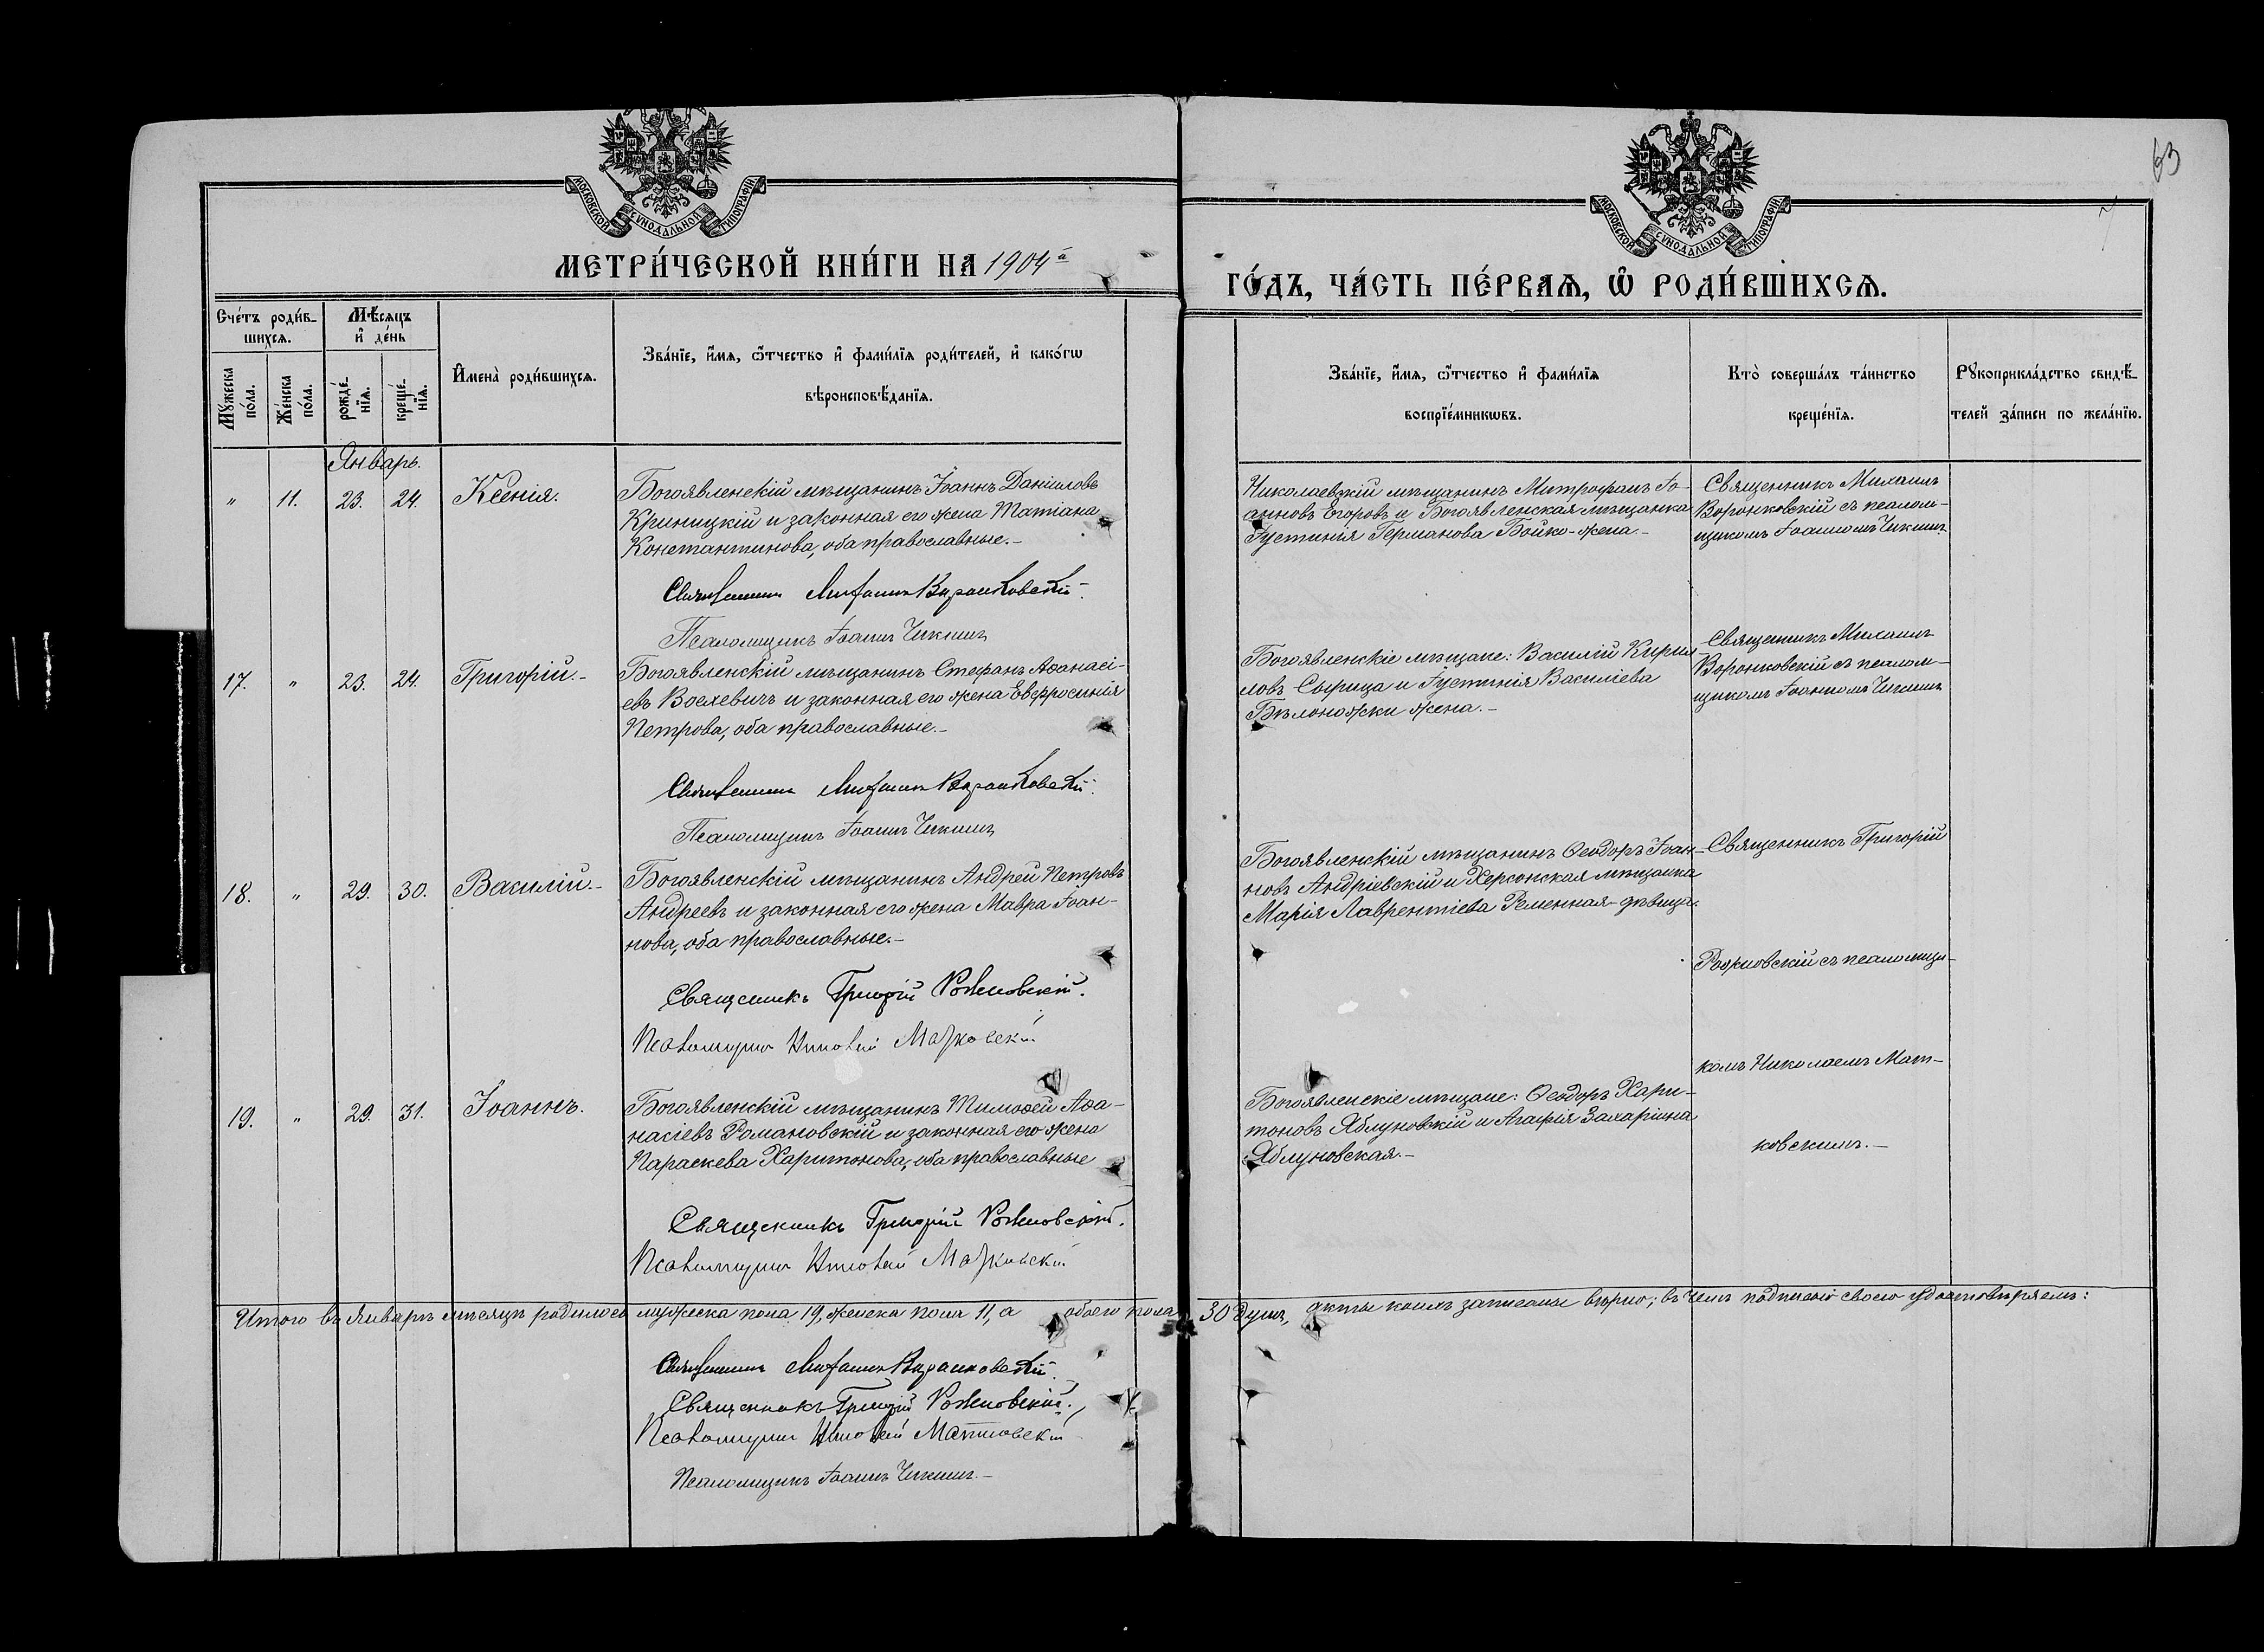 63
МОСКОВСКОЙ СѴНОДАЛЬНОЙ ТИПОГРАФІИ
МОСКОВСКОЙ СѴНОДАЛЬНОЙ ТИПОГРАФІИ
МЕТРИ́ЧЕСКОЙ КНИ́ГИ НА 1904й
ГО́ДЪ, ЧА́СТЬ ПЕ́РВАѦ, Ѽ РОДИ́ВШИХСѦ.
Сче́тъ роди́в-
шихсѧ.
Мꙋ́жеска
по́ла.
Же́нска
по́ла.
Мѣ́сѧцъ
и҆ де́нь
рожде́-
нїѧ.
креще́-
нїѧ.
И҆мена̀ роди́вшихсѧ.
Зва́нїе, и҆́мѧ, ѻ҆́тчество и҆ фами́лїѧ роди́телей, и҆ како́гѡ
вѣроисповѣ́данїѧ.
Зва́нїе, и҆́мѧ, ѻ҆́тчество и҆ фами́лїѧ
воспрїе́мникѡвъ.
Кто̀ соверша́лъ та́инство
креще́нїѧ.
Рꙋкоприкла́дство свидѣ́-
телей за́писи по жела́нїю.
Январь.
" 11. 23. 24. Ксенія.
Богоявленскій мѣщанинъ Іоаннъ Даніиловъ
Криницкій и законная его жена Татіана
Константинова, оба православные.-
Священникъ Михаилъ Воронковскій.
Псаломщикъ Іоаннъ Чикишъ
Николаевскій мѣщанинъ Митрофанъ Іо-
анновъ Егоровъ и Богоявленская мѣщанка
Іустинія Германова Бойко-жена.-
Священникъ Михаилъ
Воронковскій съ псалом-
щикомъ Іоанномъ Чикишъ.
17. " 23. 24. Григорій.-
Богоявленскій мѣщанинъ Стефанъ Аѳанасі-
евъ Воснsевичъ и законная его жена Евфросинія
Петрова, оба православные.-
Священникъ Михаилъ Воронковскій.
Псаломщикъ Іоаннъ Чикишъ
Богоявленскіе мѣщане: Василій Кирил-
ловъ Сырица и Іустинія Василіева
Бѣлоножки жена.-
Священникъ Михаилъ
Воронковскій съ псалом-
щикомъ Іоанномъ Чикишъ
18. " 29. 30. Василій.-
Богоявленскій мѣщанинъ Андрей Петровъ
Андреевъ и законная его жена Мавра Іоан-
нова, оба православные.-
Священникъ Григорій Рожновскій.
Псаломщикъ Николай Матковскій
Богоявленскій мѣщанинъ Ѳеодоръ Іоан-
новъ Андріевскій и Херсонская мѣщанка
Марія Лаврентіева Ременная-дѣвица.
Священникъ Григорій
Рожновскій съ псаломщи-
комъ Николаемъ Мат-
ковскимъ.-
19. " 29. 31. Іоаннъ.
Богоявленскій мѣщанинъ Тимоѳей Аѳа-
насіевъ Романовскій и законная его жена
Параскева Харитонова, оба православные
Священникъ Григорій Рожновскій.
Псаломщикъ Николай Матковскій
Богоявленскіе мѣщане: Ѳеодоръ Хари-
тоновъ Яблуновскій и Агафія Захаріина
Яблуновская.-
Итого въ Январѣ мѣсяцѣ родилось мужеска пола 19, женска пола 11, а обоего пола 30 душъ, акты коимъ записаны вѣрно; въ чемъ подписью своею удостовѣряемъ:
Священникъ Михаилъ Воронковскій.
Священникъ Григорій Рожновскій.
Псаломщикъ Николай Матковскій
Псаломщикъ Іоаннъ Чикишъ.-